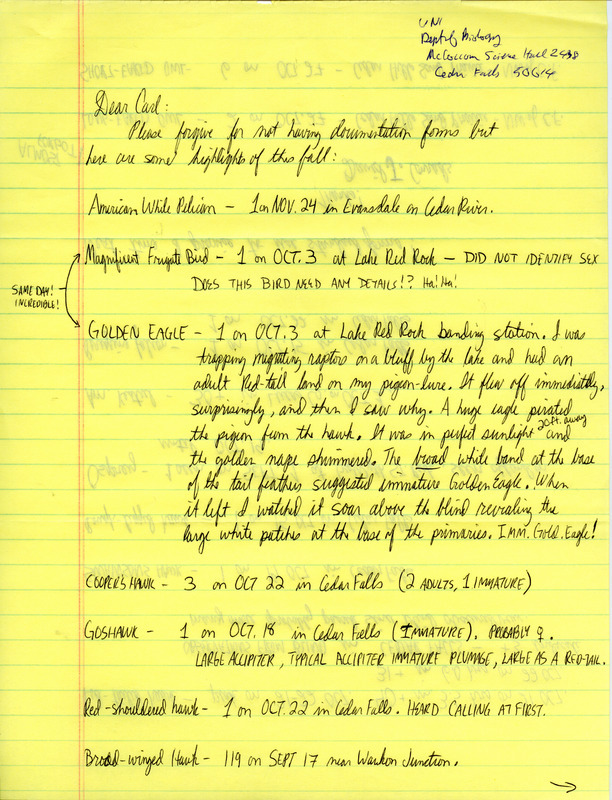 UNI
Dept of Biology
McCollum Science Hall 2438
Cedar Falls 50614
Dear Carl:
Please forgive for not having documentation forms but
here are some highlights of this fall:
American White Pelican – 1 on NOV. 24 in Evansdale on Cedar River.
Magnificent Frigate Bird – 1 on OCT. 3 at Lake Red Rock – DID NOT IDENTIFY SEX
DOES THIS BIRD NEED ANY DETAILS!? Ha! Ha!
SAME DAY!
INCREDIBLE!
GOLDEN EAGLE – 1 on OCT. 3 at Lake Red Rock banding station. I was
trapping migrating raptors on a bluff by the lake and had an
adult Red-tail land on my pigeon-lure. It flew off immediately,
surprisingly, and then I saw why. A huge eagle pirated
the pigeon from the hawk. It was in perfect sunlight 20 ft. away and
the golden nape shimmered. The broad white band at the base
of the tail feathers suggested immature Golden Eagle. When
it left I watched it soar above the blind revealing the
large white patches at the base of the primaries. IMM. Gold. Eagle!
COOPER'S HAWK – 3 on OCT 22 in Cedar Falls (2 ADULTS, 1 IMMATURE)
GOSHAWK – 1 on OCT. 18 in Cedar Falls (IMMATURE). PROBABLY ♀.
LARGE ACCIPITER, TYPICAL ACCIPITER IMMATURE PLUMAGE, LARGE AS A RED-TAIL.
Red-shouldered hawk – 1 on OCT. 22 in Cedar Falls. HEARD CALLING AT FIRST.
Broad-winged Hawk – 119 on SEPT 17 near Waukon Junction.